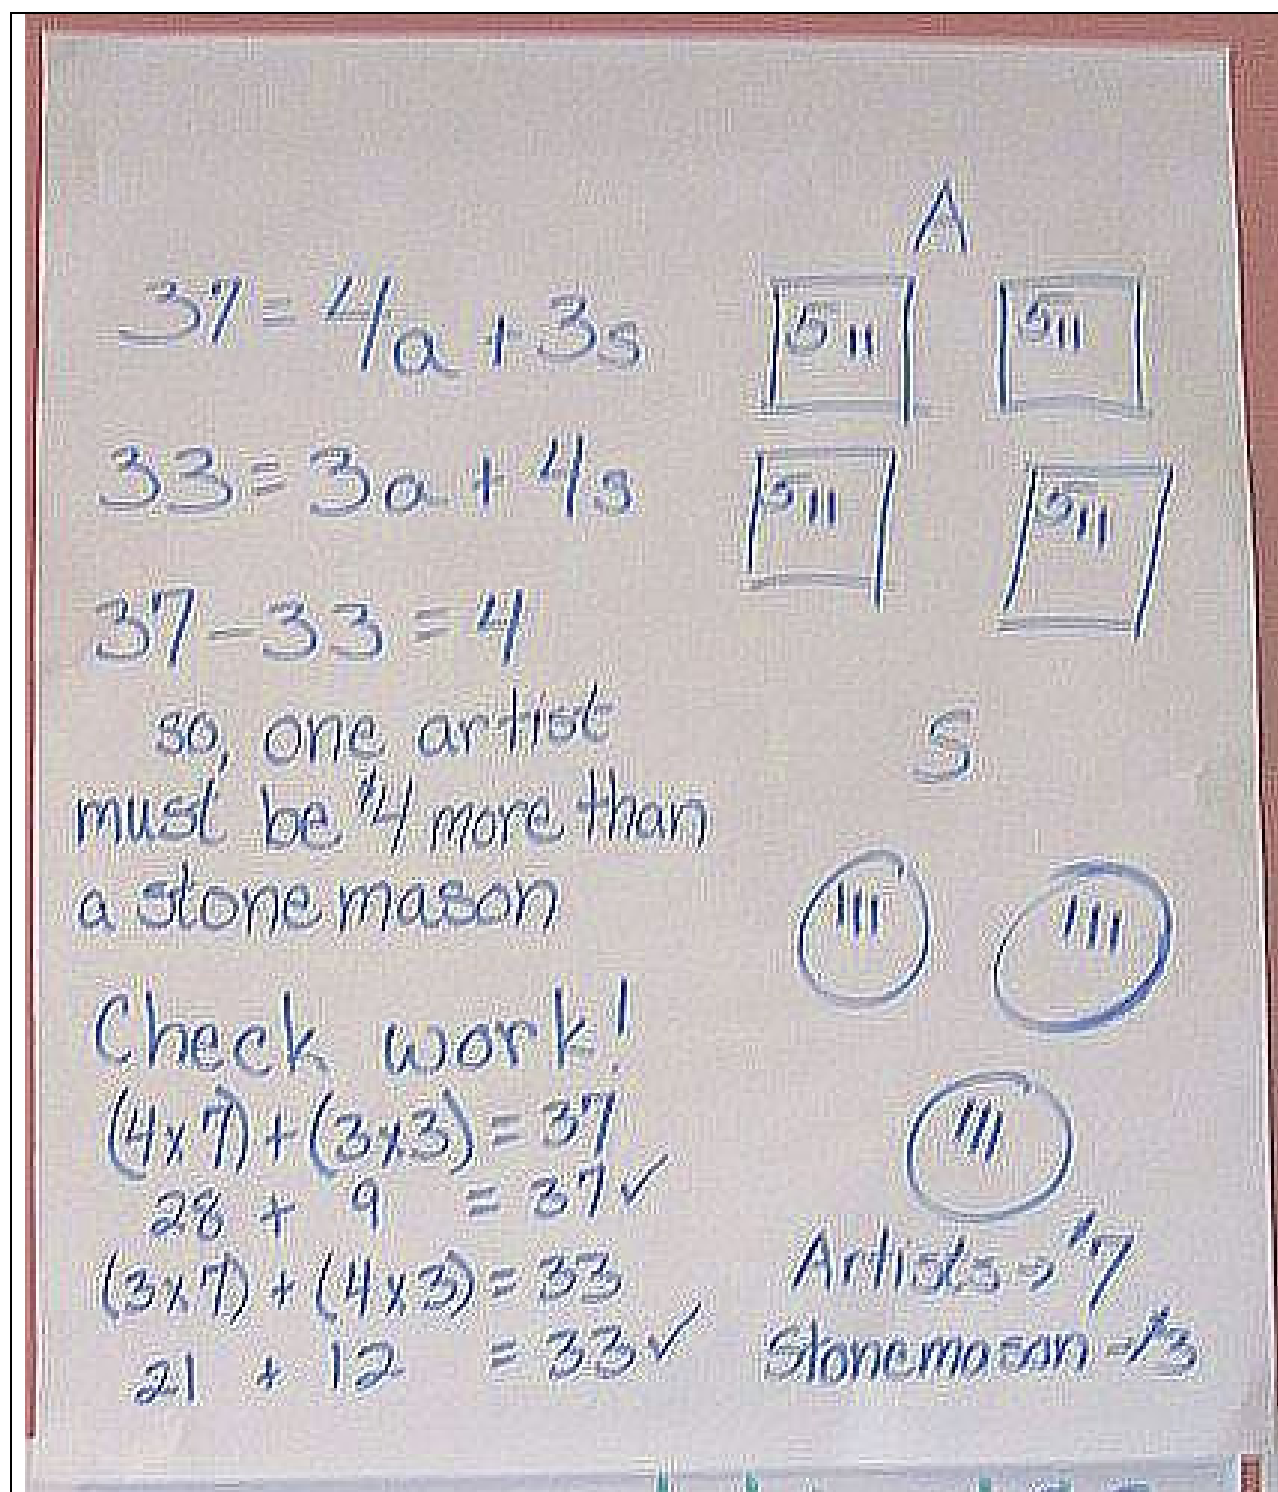 37 = 4a + 3s
33 = 3a + 4s
37 - 33 = 4
so, one artist
must be $4 more than
a stone mason
Check work!
(4x7) + (3x3) = 37
28 + 9 = 37 ✓
(3x7) + (4x3) = 33
21 + 12 = 33 ✓
A
5 11 5 11
5 11 5 11
S
111 111
111
Artists → $7
Stonemason → $3